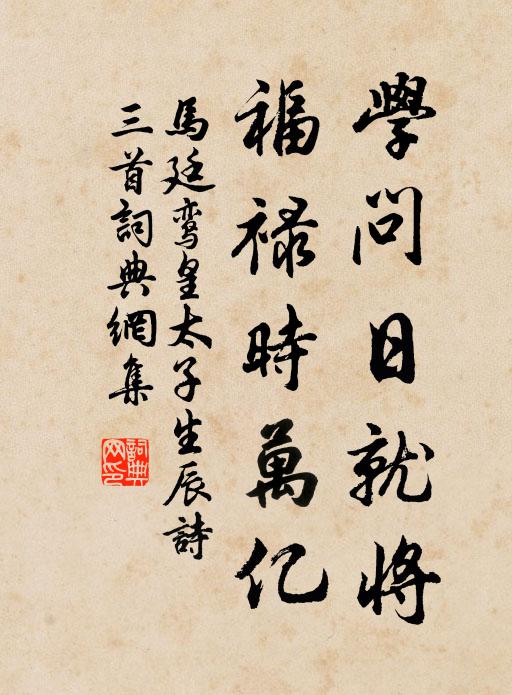 學问日就將
福禄時萬亿
馬廷鸞皇太子生辰詩
三首詞典網集
詞典网印